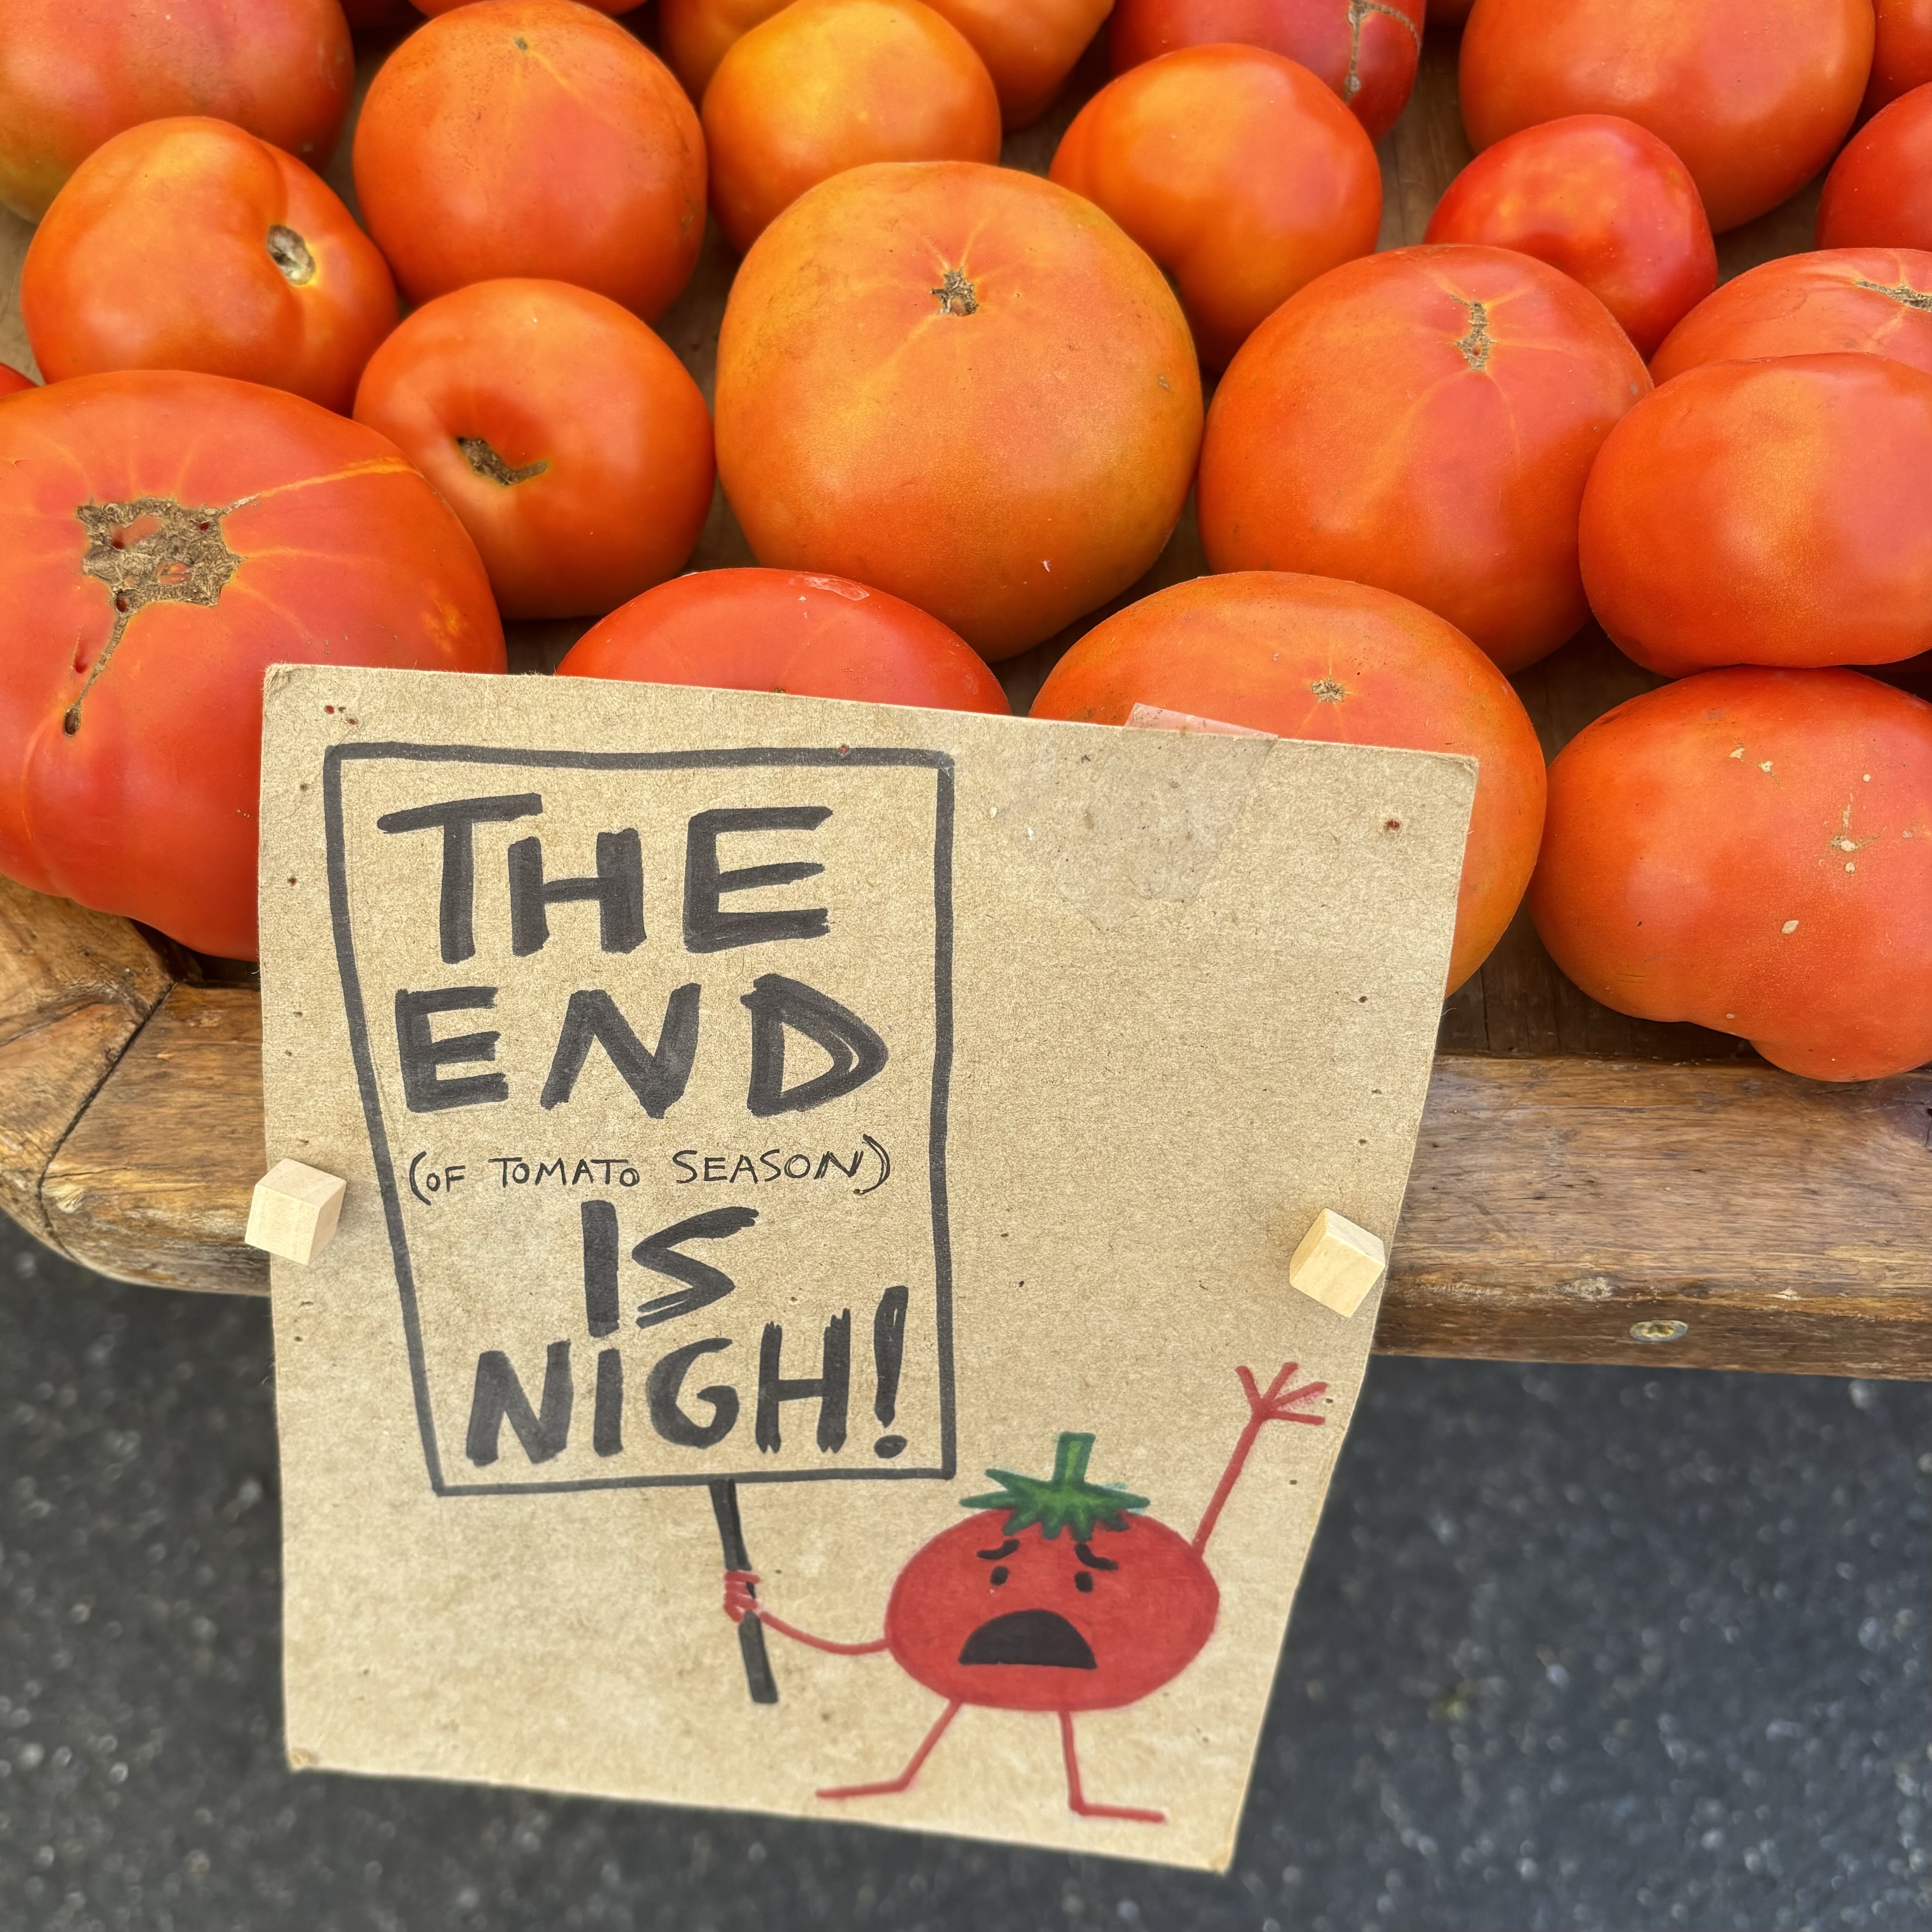 THE
END
(OF TOMATO SEASON)
IS
NIGH!